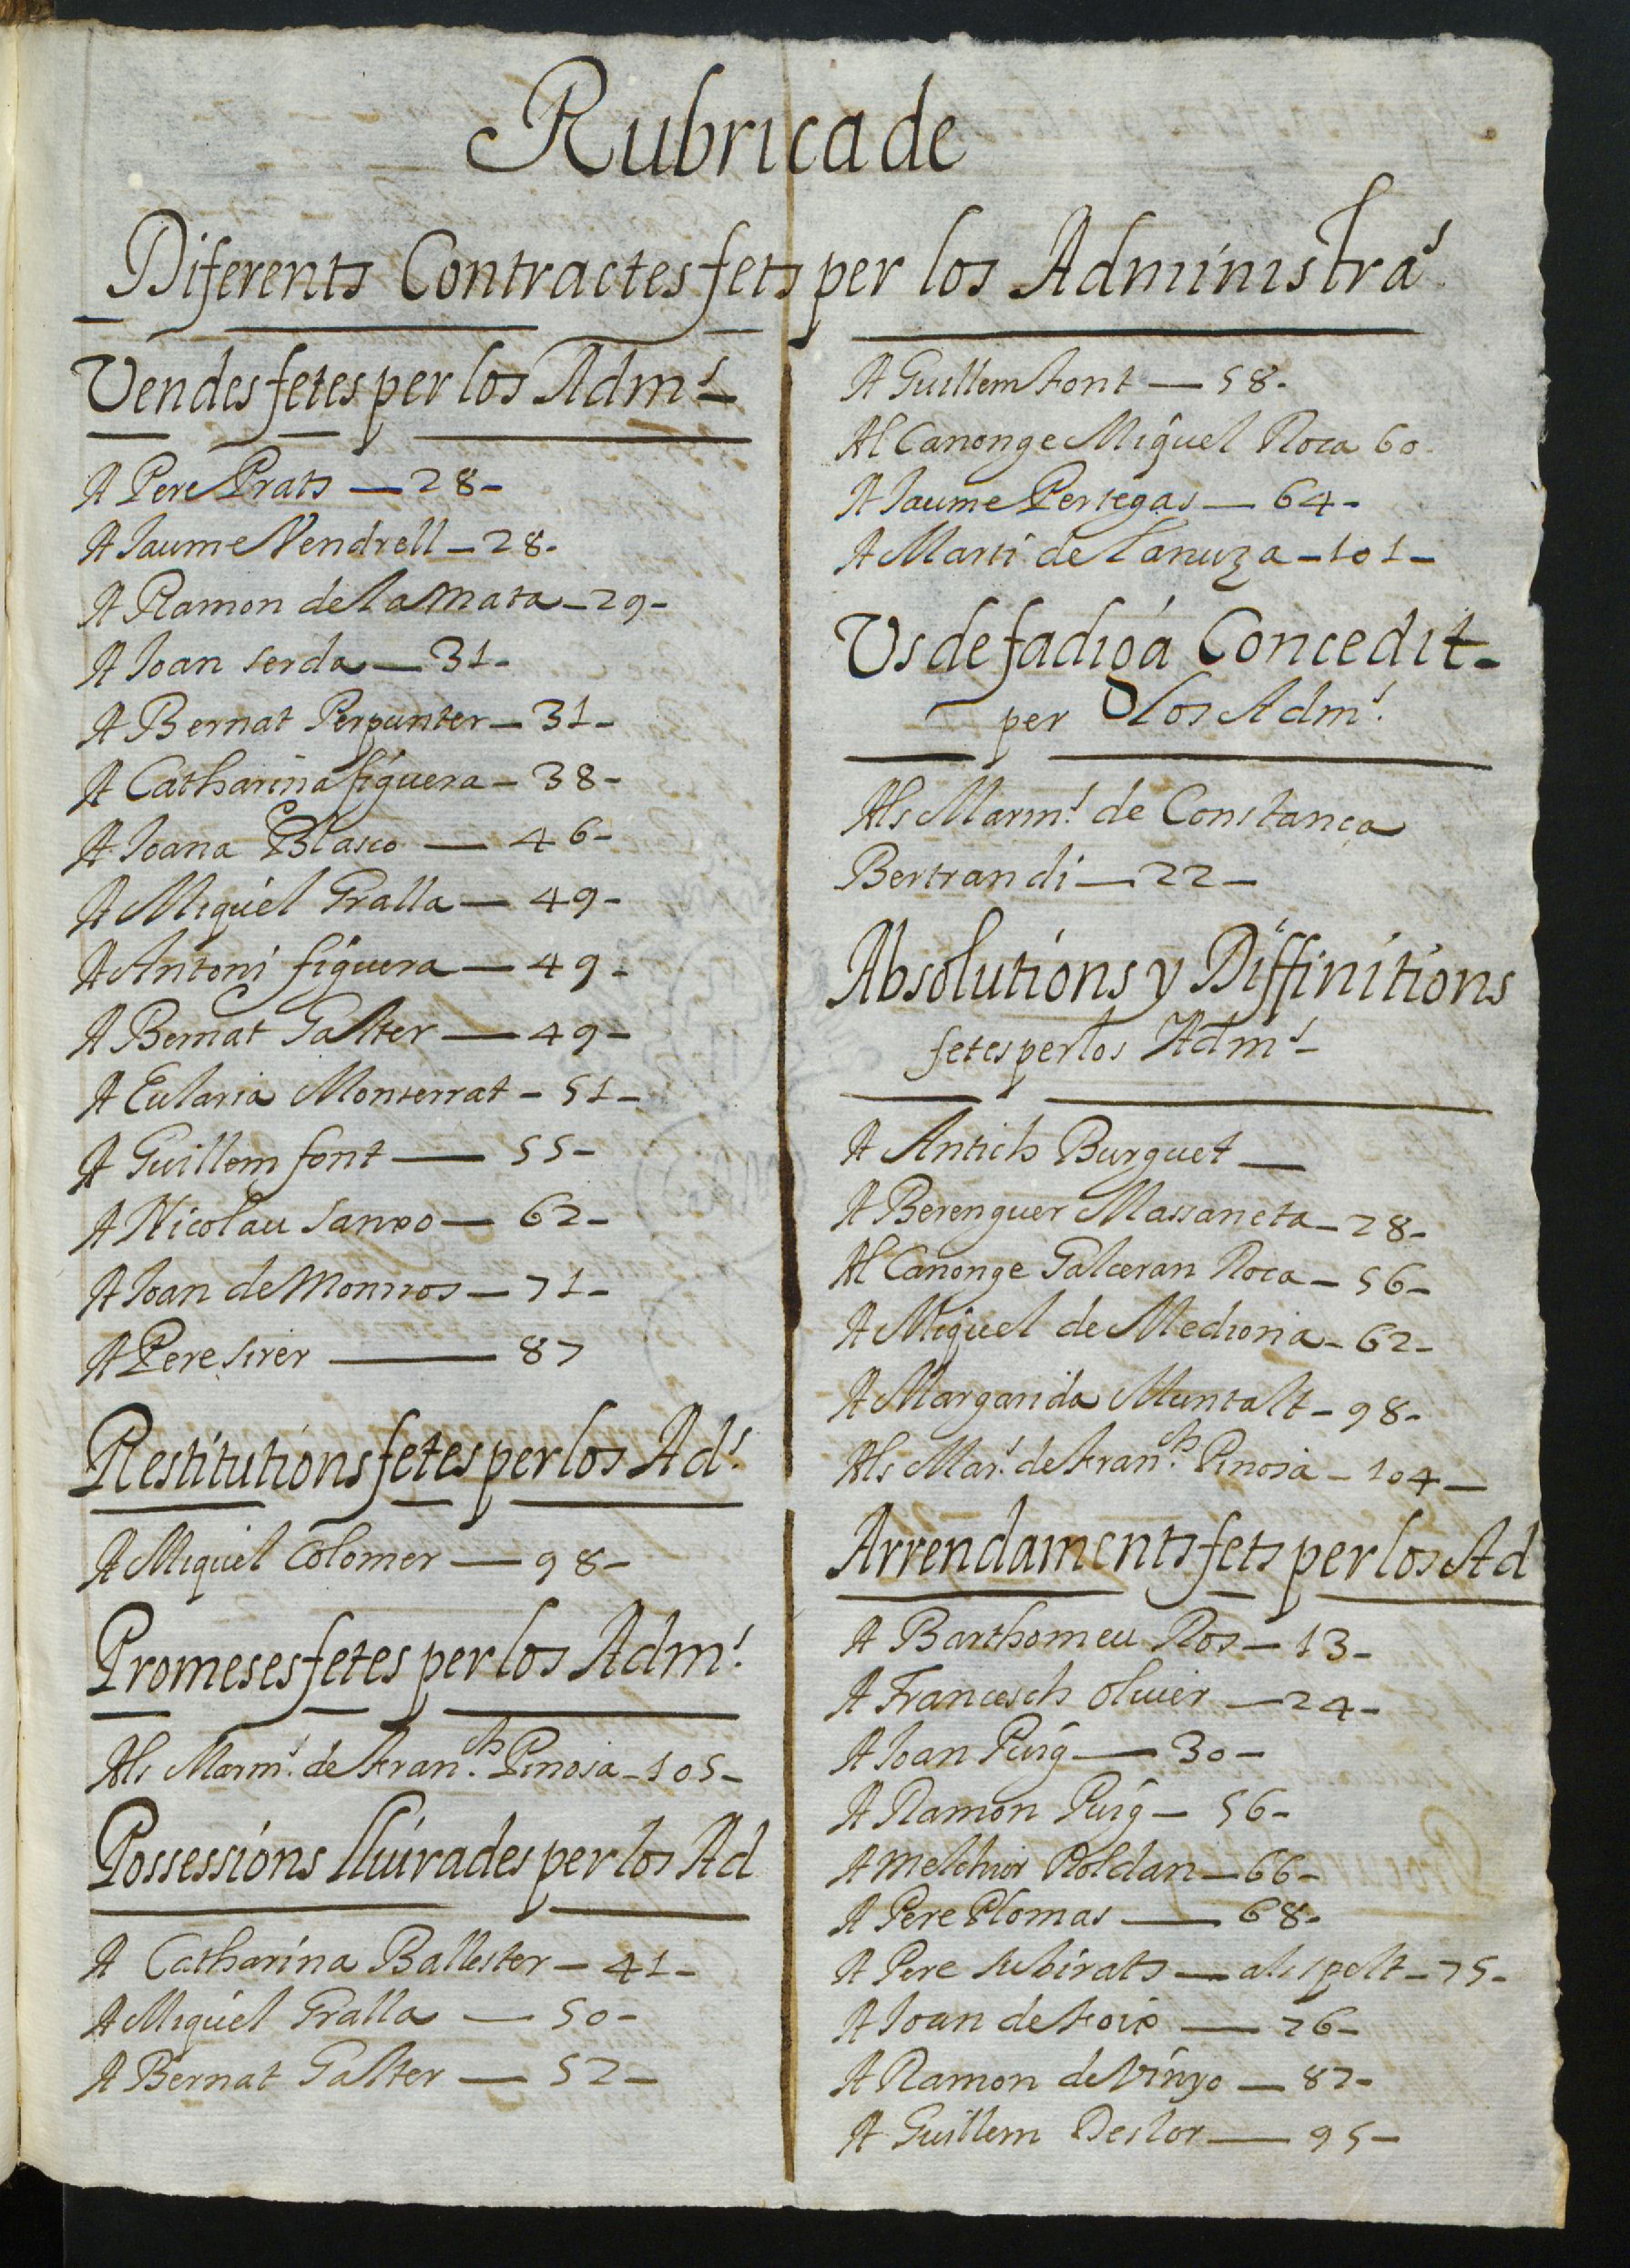 Rubrica de
Diferents Contractes fets per los Administra.s
Vendes fetes per los Adm.s
A Pere Prats — 28 -
A Jaume Vendrell — 28 -
A Ramon de la Mata — 29 -
A Joan Serda — 31 -
A Bernat Perpunter — 31 -
A Catharina figuera — 38 -
A Joana Blasco — 46 -
A Miquel Gralla — 49 -
A Antoni figuera — 49 -
A Bernat Galter — 49 -
A Eularia Monserrat — 51 -
A Guillem font — 55 -
A Nicolau Sanxo — 62 -
A Joan de Monrros — 71 -
A Pere Sirer — 87
Restitutions fetes per los Ad.s
A Miquel Colomer — 98 -
Promeses fetes per los Adm.s
Als Marm.s de Fran.ch Pinosa — 105 -
Possessions lluirades per los Ad
A Catharina Ballester — 41 -
A Miquel Gralla — 50 -
A Bernat Galter — 52 -
A Guillem Font — 58 -
Al Canonge Miquel Roca 60 -
A Jaume Pertegas — 64 -
A Marti de Lanuza — 101 -
Us de fadiga Concedit
per los Adm.s
Als Marm.s de Constança
Bertrandi — 22 -
Absolutions y Diffinitions
fetes per los Adm.s
A Antich Burguet —
A Berenguer Massaneta — 28 -
Al Canonge Galceran Roca — 56 -
A Miquel de Mediona — 62 -
A Margarida Muntalt — 98 -
Als Mar.s de Fran.ch Pinosa — 104 -
Arrendaments fets per los Ad
A Barthomeu Ros — 13 -
A Francesch Oliver — 24 -
A Joan Puig — 30 -
A Ramon Puig — 56 -
A Melchior Roldan — 66 -
A Pere Plomas — 68 -
A Pere Subirats — als spelt — 75 -
A Joan de Foix — 76 -
A Ramon de Vinyo — 87 -
A Guillem Deslor — 95 -